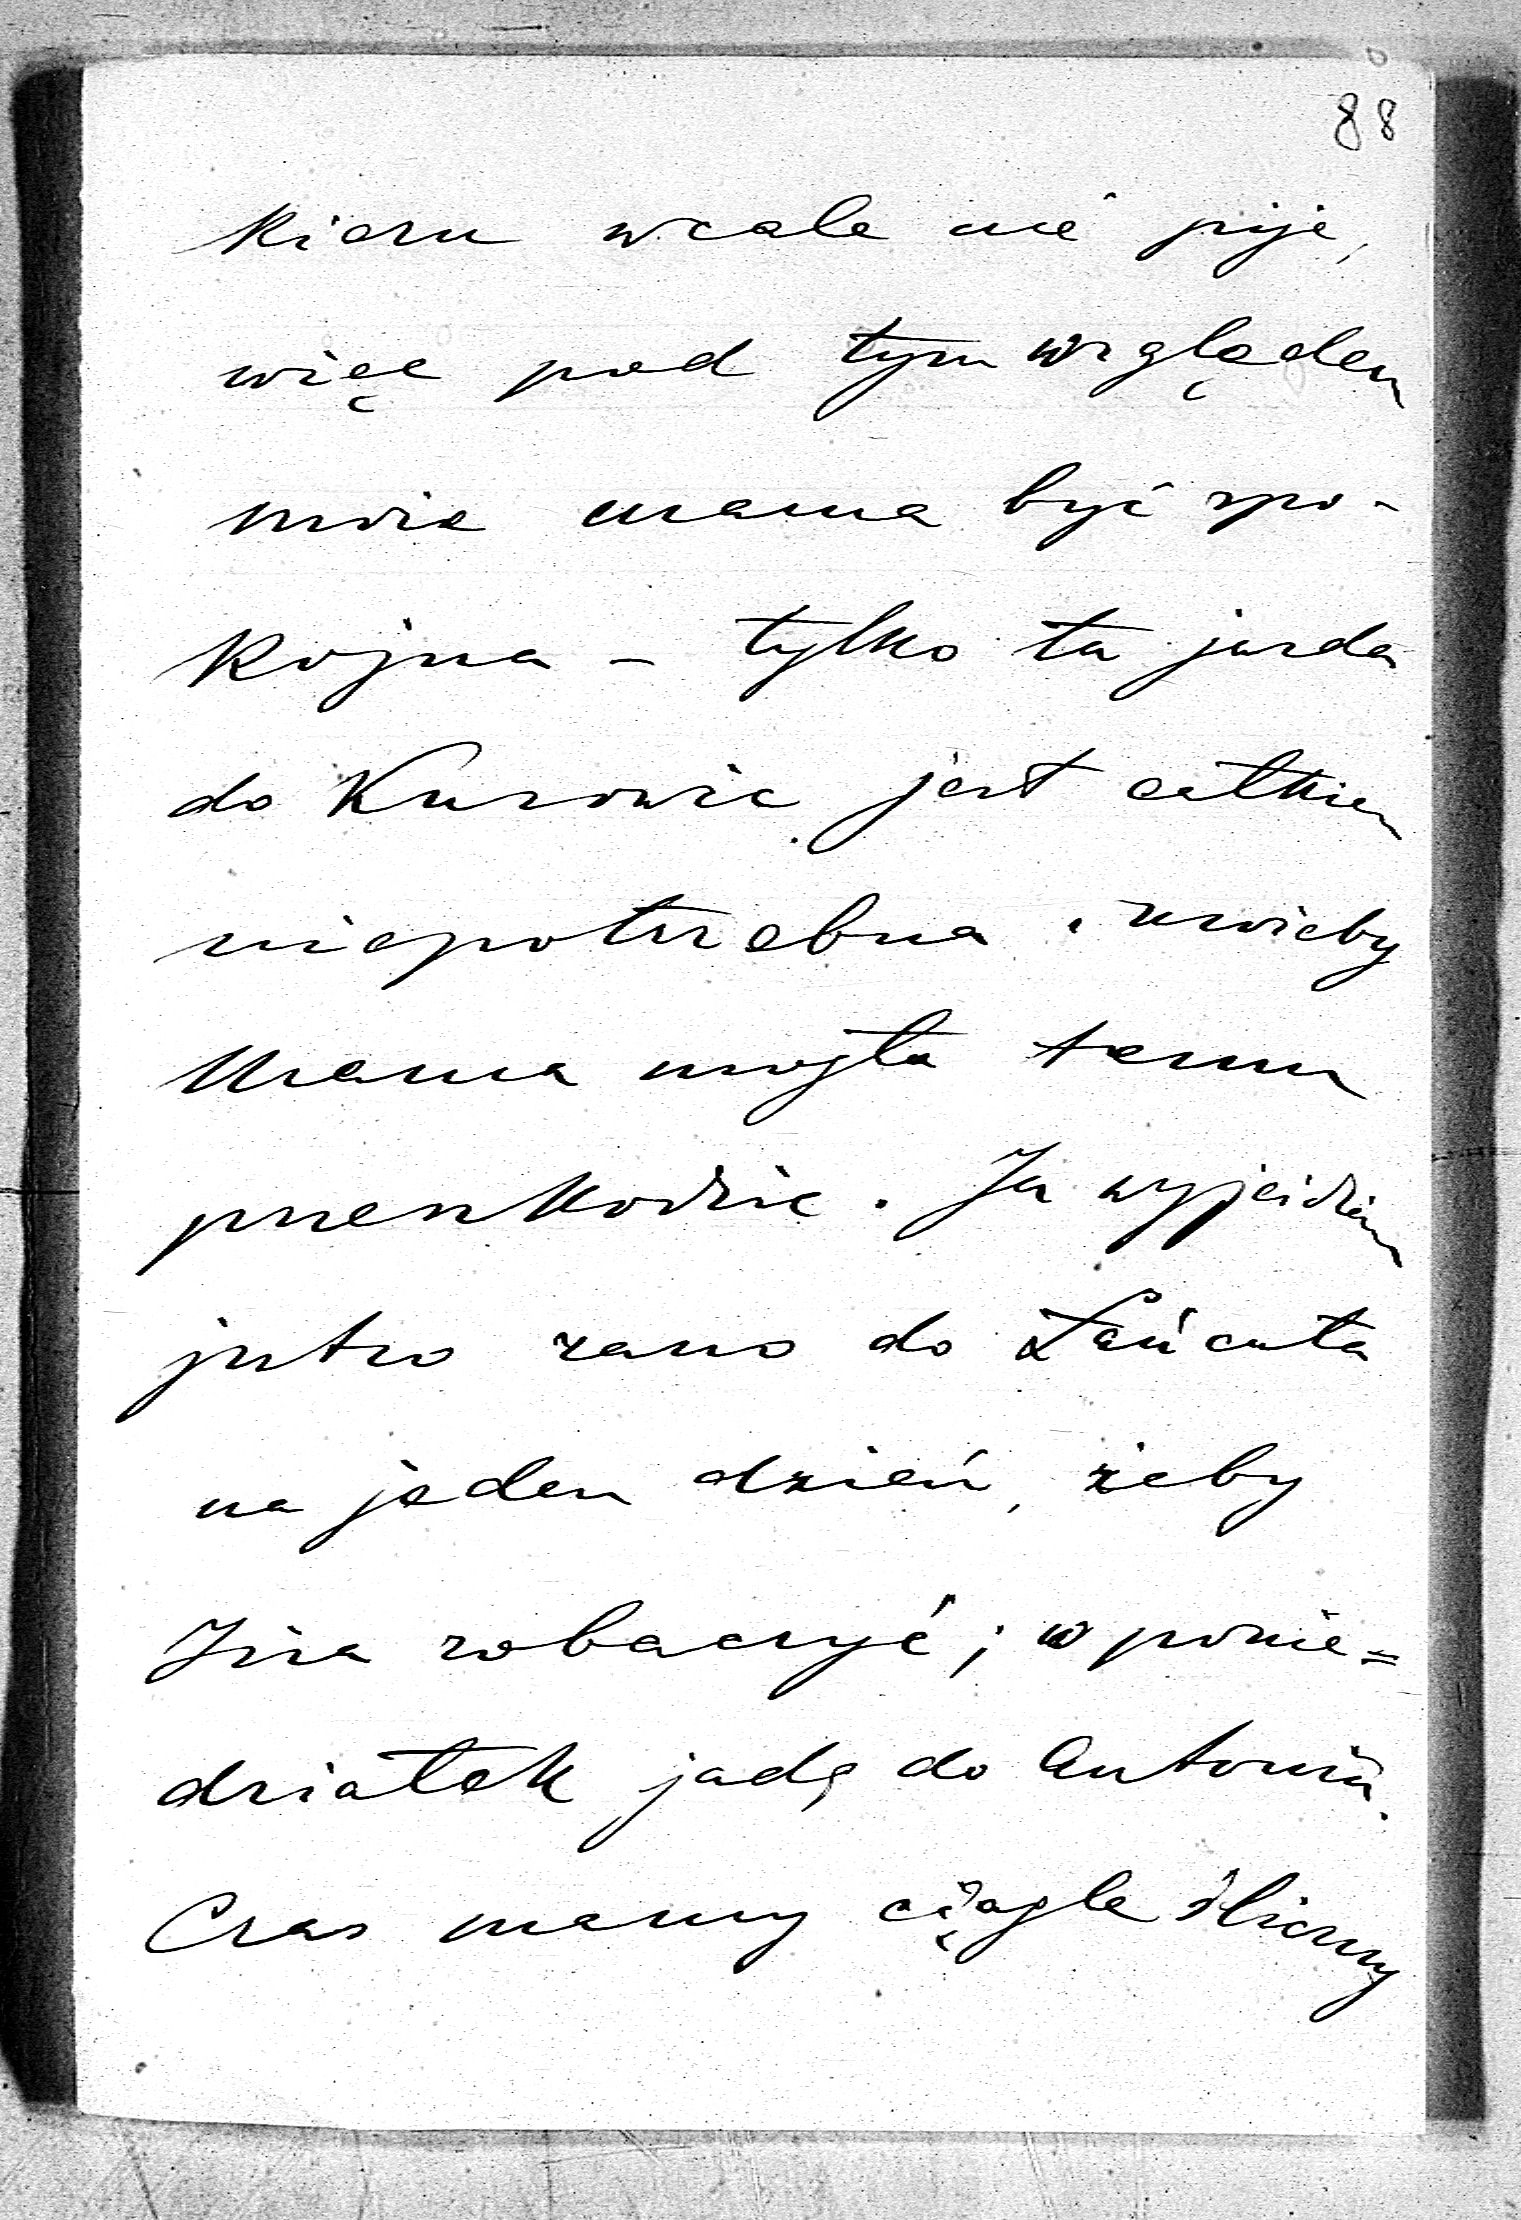 88
kieru wcale nie pije,
więc pod tym względem
może mama być spo-
kojna – tylko ta jazda
do Kurowic jest całkiem
niepotrzebna,
Mama mogła temu
przeszkodzić. Ja wyjeżdżam
jutro rano do Łańcuta
na jeden dzień, żeby
zobaczyć; w ponie=
działek jadę do Antonin.
Czas mamy ciągle śliczny